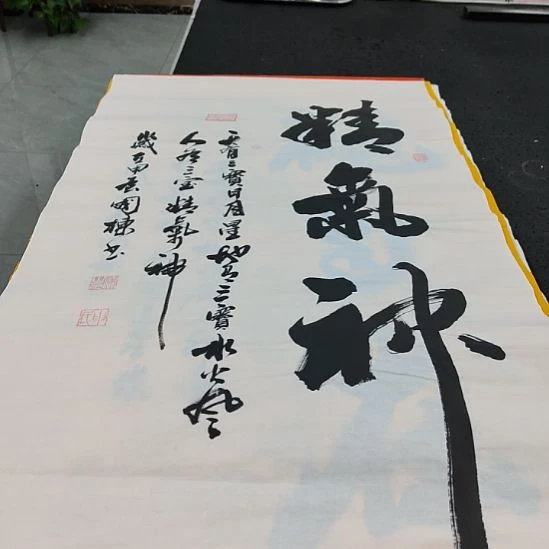 精氣神
天有三寶日月星地有三寶水火風
人有三宝精氣神
歲國棟书